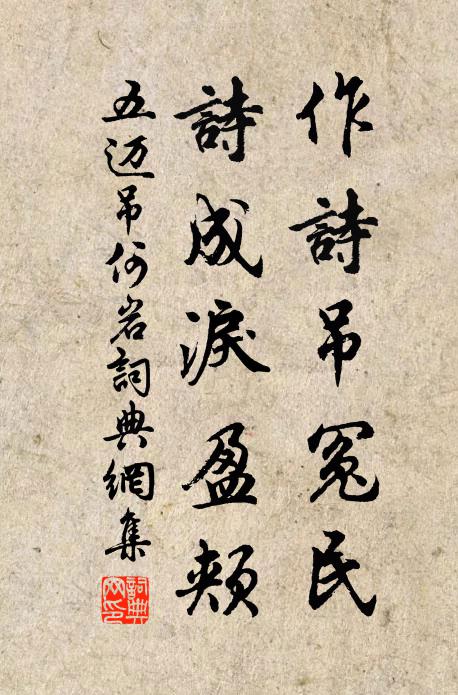 作詩吊冤民
詩成淚盈頰
五迈吊何岩詞典網集
詞典